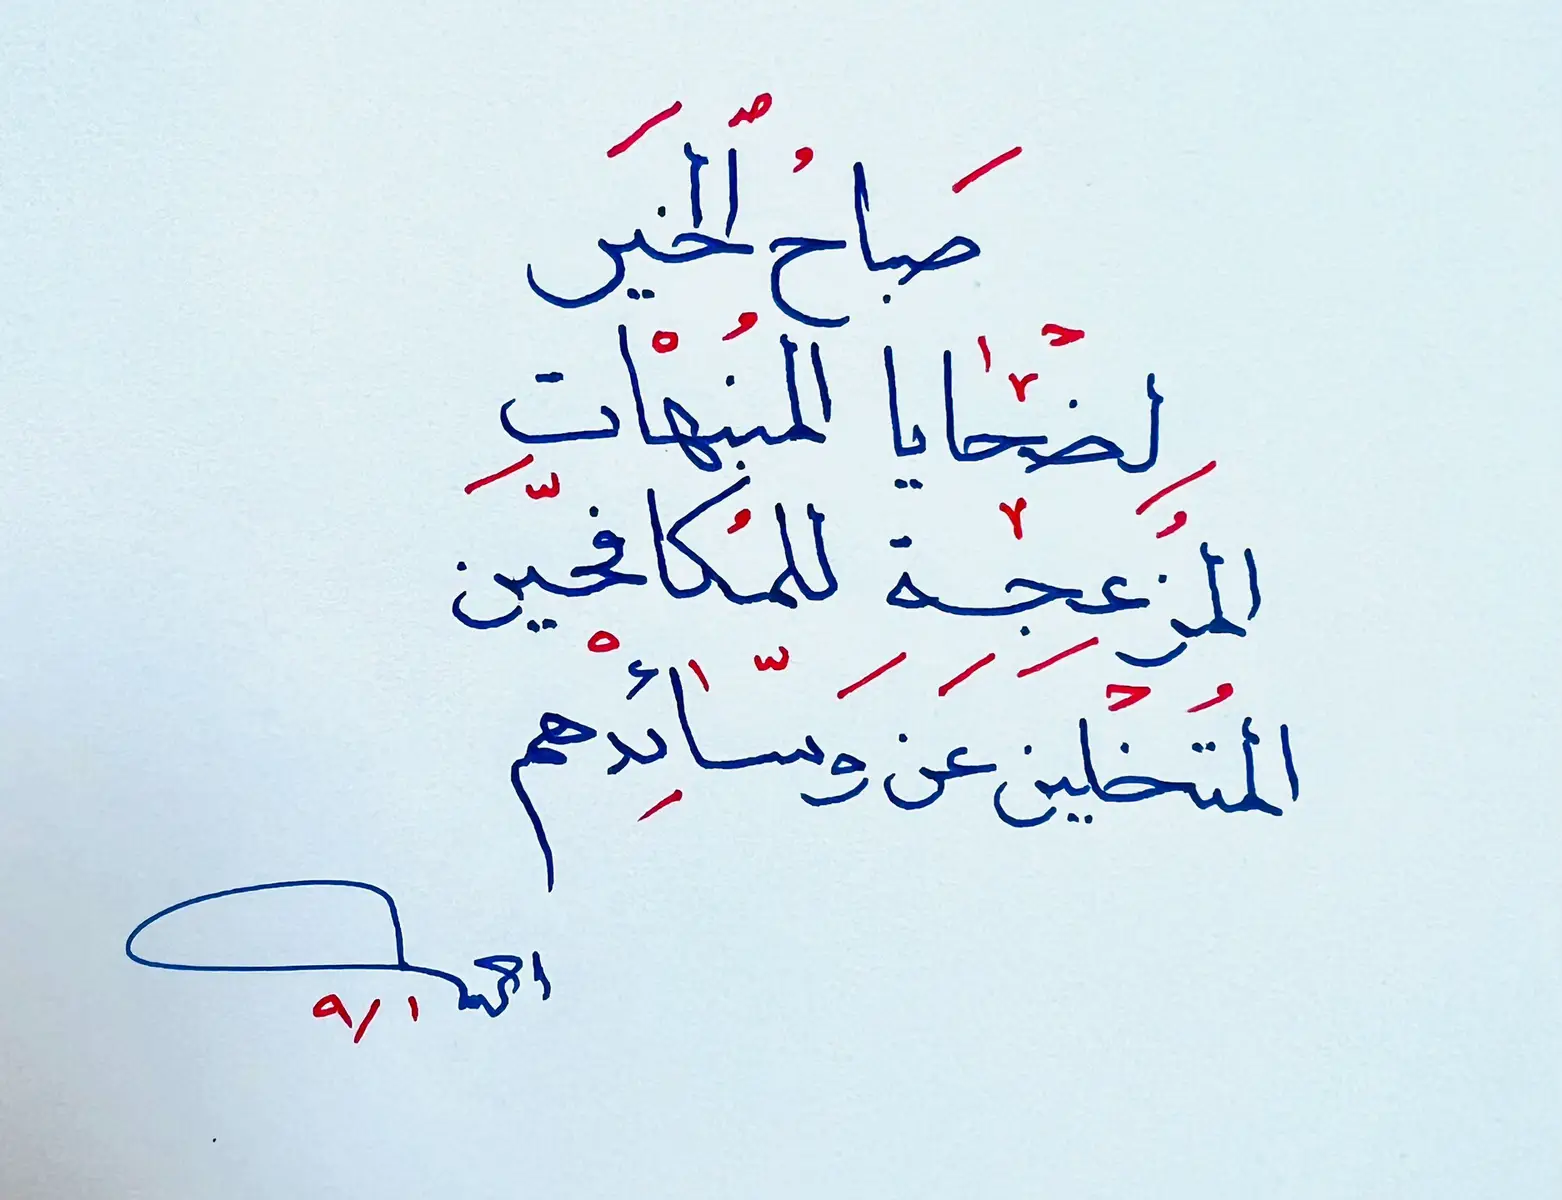 صَباحُ ٱلخَير
لضحايا المُنبهْات
المُزعجة للمُكافحين
المُتخلين عَن وَسائِدهم
احمد
٩/١